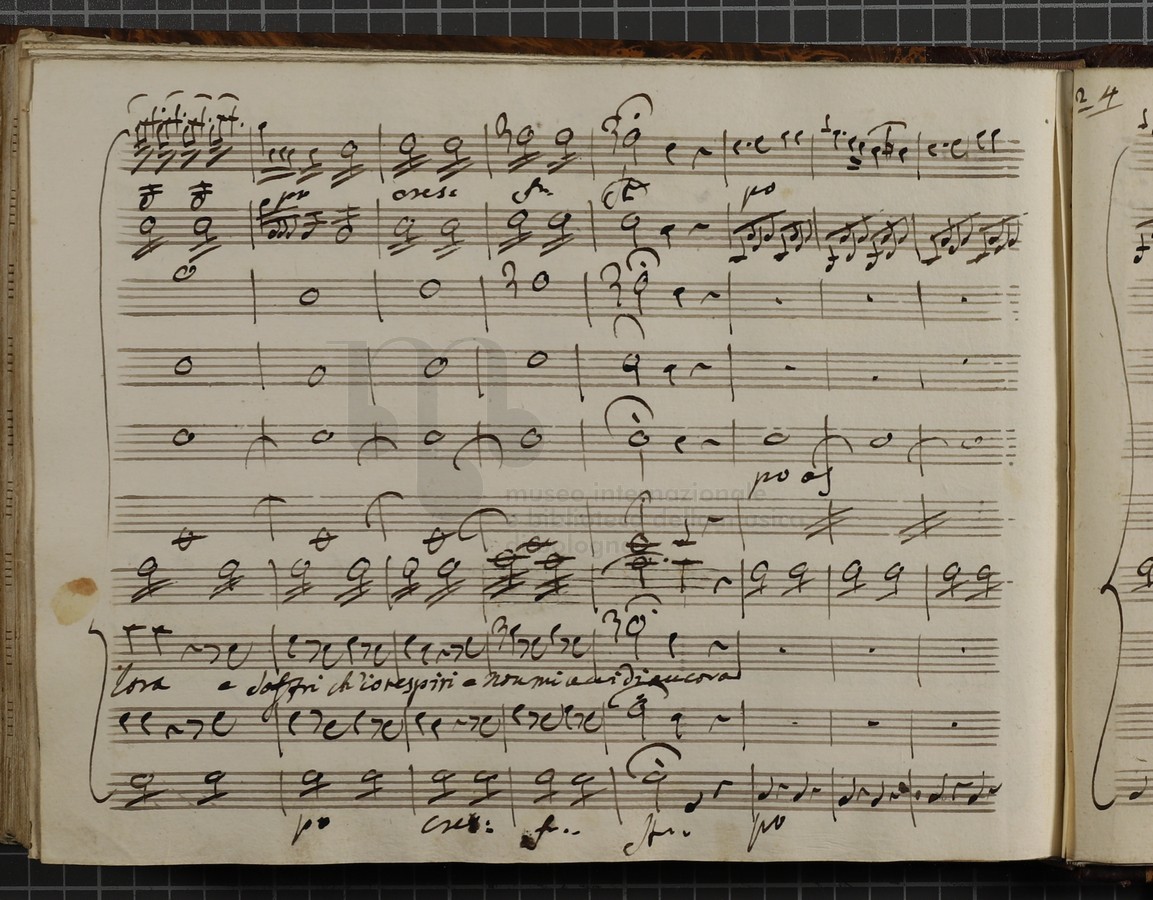 24
po cresc fr
po
po
museo internazionale
e biblioteca della musica
di bologna
lora e soffri ch'io respiri e non mi uccidi ancora
po cresc: f..
po